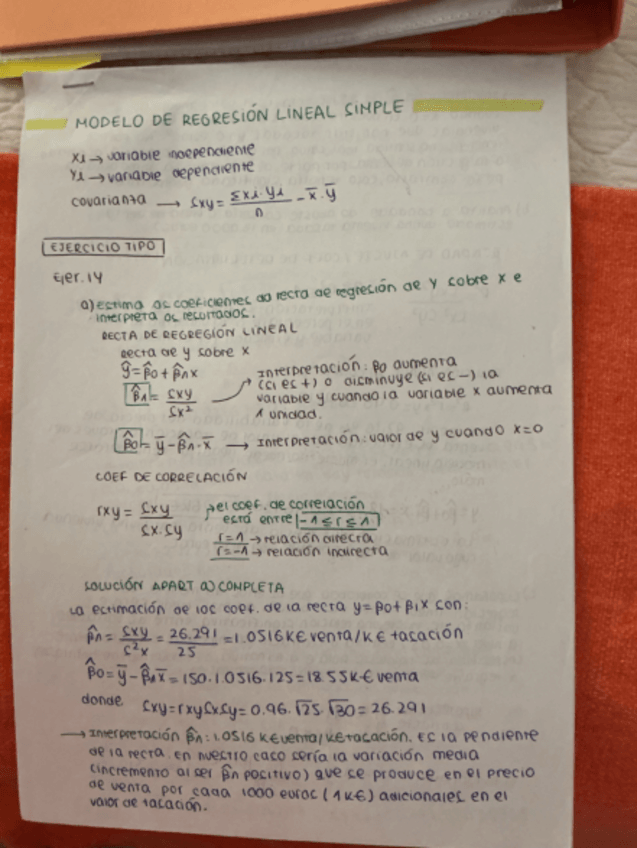 MODELO DE REGRESIÓN LINEAL SIMPLE
xi → variable independiente
yi → variable dependiente
covarianza → Sxy = Σxi·yi / n − x̄·ȳ
EJERCICIO TIPO
Ejer. 14
a) estima os coeficientes da recta de regresión de Y sobre X e
interpreta os resultados.
RECTA DE REGRESIÓN LINEAL
Recta de y sobre x
ŷ = β̂0 + β̂1x
β̂1 = Sxy / Sx²
Interpretación: β0 aumenta
(si es +) o disminuye (si es −) la
variable y cuando la variable x aumenta
1 unidad.
β̂0 = ȳ − β̂1·x̄ → Interpretación: valor de y cuando x=0
COEF DE CORRELACIÓN
rxy = Sxy / Sx·Sy
→ el coef. de correlación
está entre −1 ≤ r ≤ 1
r=1 → relación directa
r=−1 → relación indirecta
SOLUCIÓN APART a) COMPLETA
La estimación de los coef. de la recta y = β0 + β1x son:
β̂1 = Sxy / S²x = 26.291 / 25 = 1.0516 K€ venta/K€ tasación
β̂0 = ȳ − β̂1x̄ = 150·1.0516·125 = 18.55 K€ venta
donde Sxy = rxySxSy = 0.96·√25·√30 = 26.291
→ Interpretación β̂1: 1.0516 K€ venta/K€ tasación. Es la pendiente
de la recta. En nuestro caso sería la variación media
(incremento al ser β̂1 positivo) que se produce en el precio
de venta por cada 1000 euros (1 K€) adicionales en el
valor de tasación.